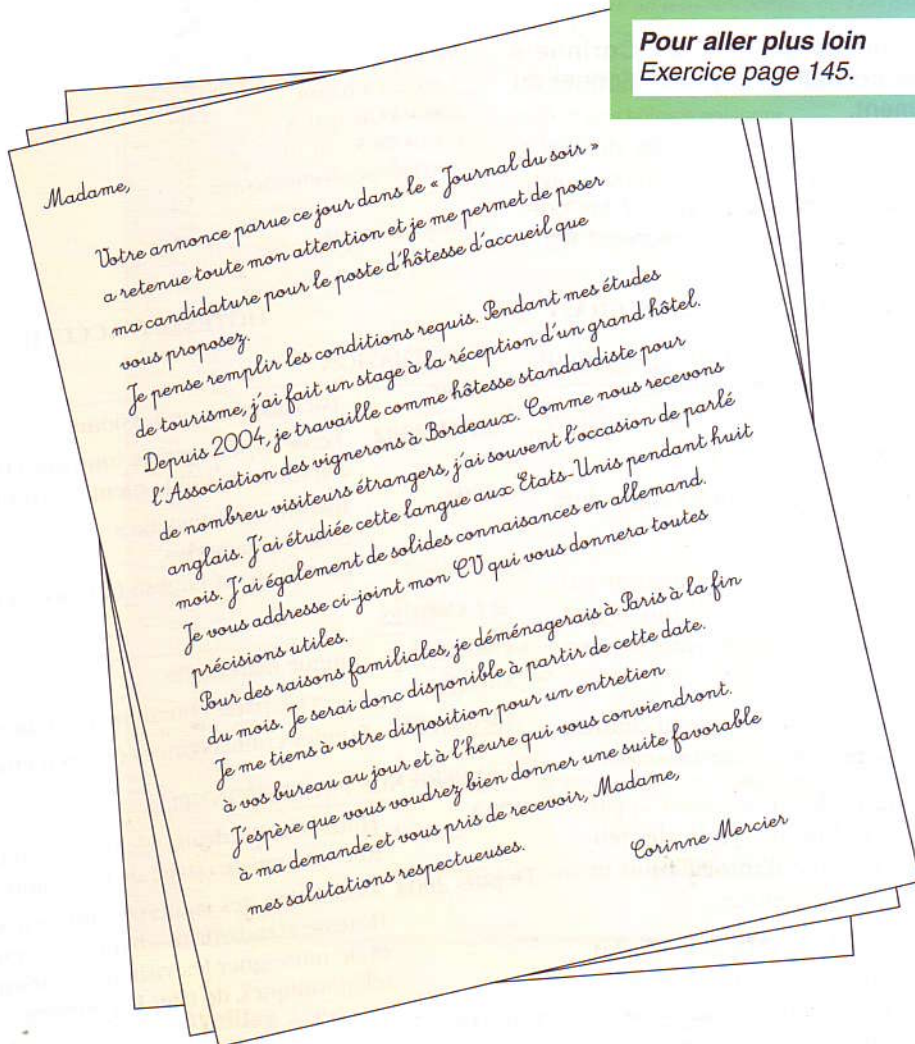 Pour aller plus loin
Exercice page 145.
Madame,
Votre annonce parue ce jour dans le « Journal du soir »
a retenue toute mon attention et je me permet de poser
ma candidature pour le poste d'hôtesse d'accueil que
vous proposez.
Je pense remplir les conditions requis. Pendant mes études
de tourisme, j'ai fait un stage à la réception d'un grand hôtel.
Depuis 2004, je travaille comme hôtesse standardiste pour
l'Association des vignerons à Bordeaux. Comme nous recevons
de nombreu visiteurs étrangers, j'ai souvent l'occasion de parlé
anglais. J'ai étudiée cette langue aux États-Unis pendant huit
mois. J'ai également de solides connaisances en allemand.
Je vous addresse ci-joint mon CV qui vous donnera toutes
précisions utiles.
Pour des raisons familiales, je déménagerais à Paris à la fin
du mois. Je serai donc disponible à partir de cette date.
Je me tiens à votre disposition pour un entretien
à vos bureau au jour et à l'heure qui vous conviendront.
J'espère que vous voudrez bien donner une suite favorable
à ma demande et vous pris de recevoir, Madame,
mes salutations respectueuses.
Corinne Mercier